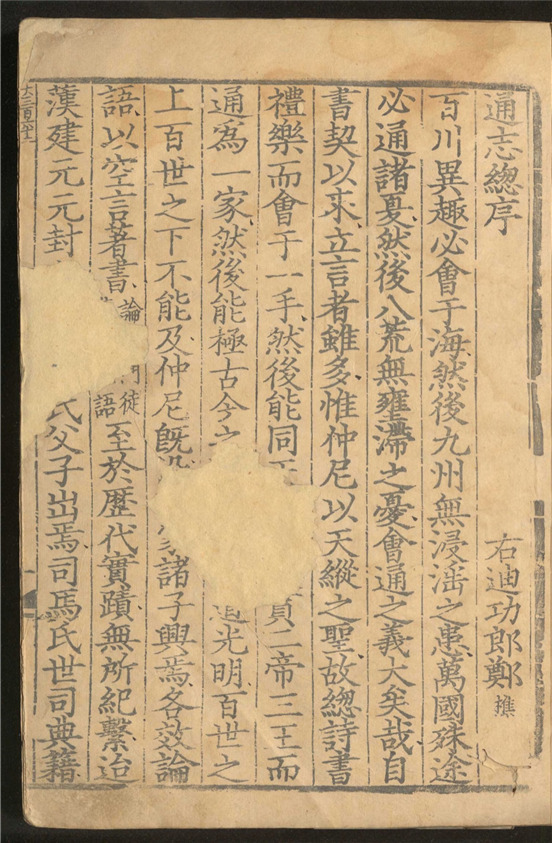 通志總序 右迪功郎鄭樵
百川異趣必會于海然後九州無浸淫之患萬國殊途
必通諸夏然後八荒無壅滯之憂會通之義大矣哉自
書契以來立言者雖多惟仲尼以天縱之聖故總詩書
禮樂而會于一手然後能同貫二帝三王而
通爲一家然後能極古今之道光明百世之
上百世之下不能及仲尼旣諸子興焉各效論
語以空言著書論門徒語至於歷代實蹟無所紀繫迨
漢建元元封氏父子出焉司馬氏世司典籍